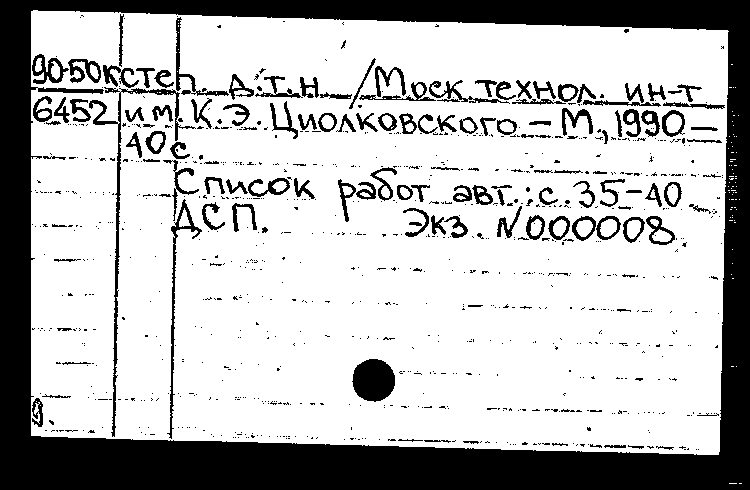 90-50к степ. д.т.н. /Моск. технол. ин-т
6452 им. К.Э. Циолковского – М., 1990 –
40 с.
Список работ авт.: с. 35-40
ДСП. Экз. N000008.
9.